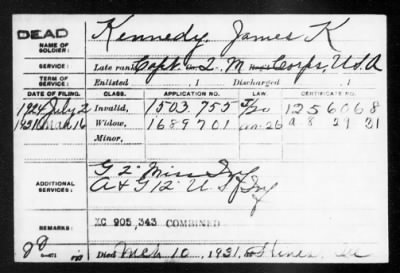 DEAD
NAME OF SOLDIER: Kennedy, James K
SERVICE: Late rank Capt. Q. M. Corps, U.S.A
TERM OF SERVICE: Enlisted , 1 Discharged , 1
DATE OF FILING. CLASS. APPLICATION NO. LAW. CERTIFICATE NO.
1924 July 2 Invalid, 1503,755 1256068
1931 Mch 16 Widow, 1689701 A 8 29 31
Minor,
ADDITIONAL SERVICES: G 2" Miss Inf
A & G 12" U S Inf
REMARKS: XC 905,343 COMBINED
Died Mch 10, 1931,